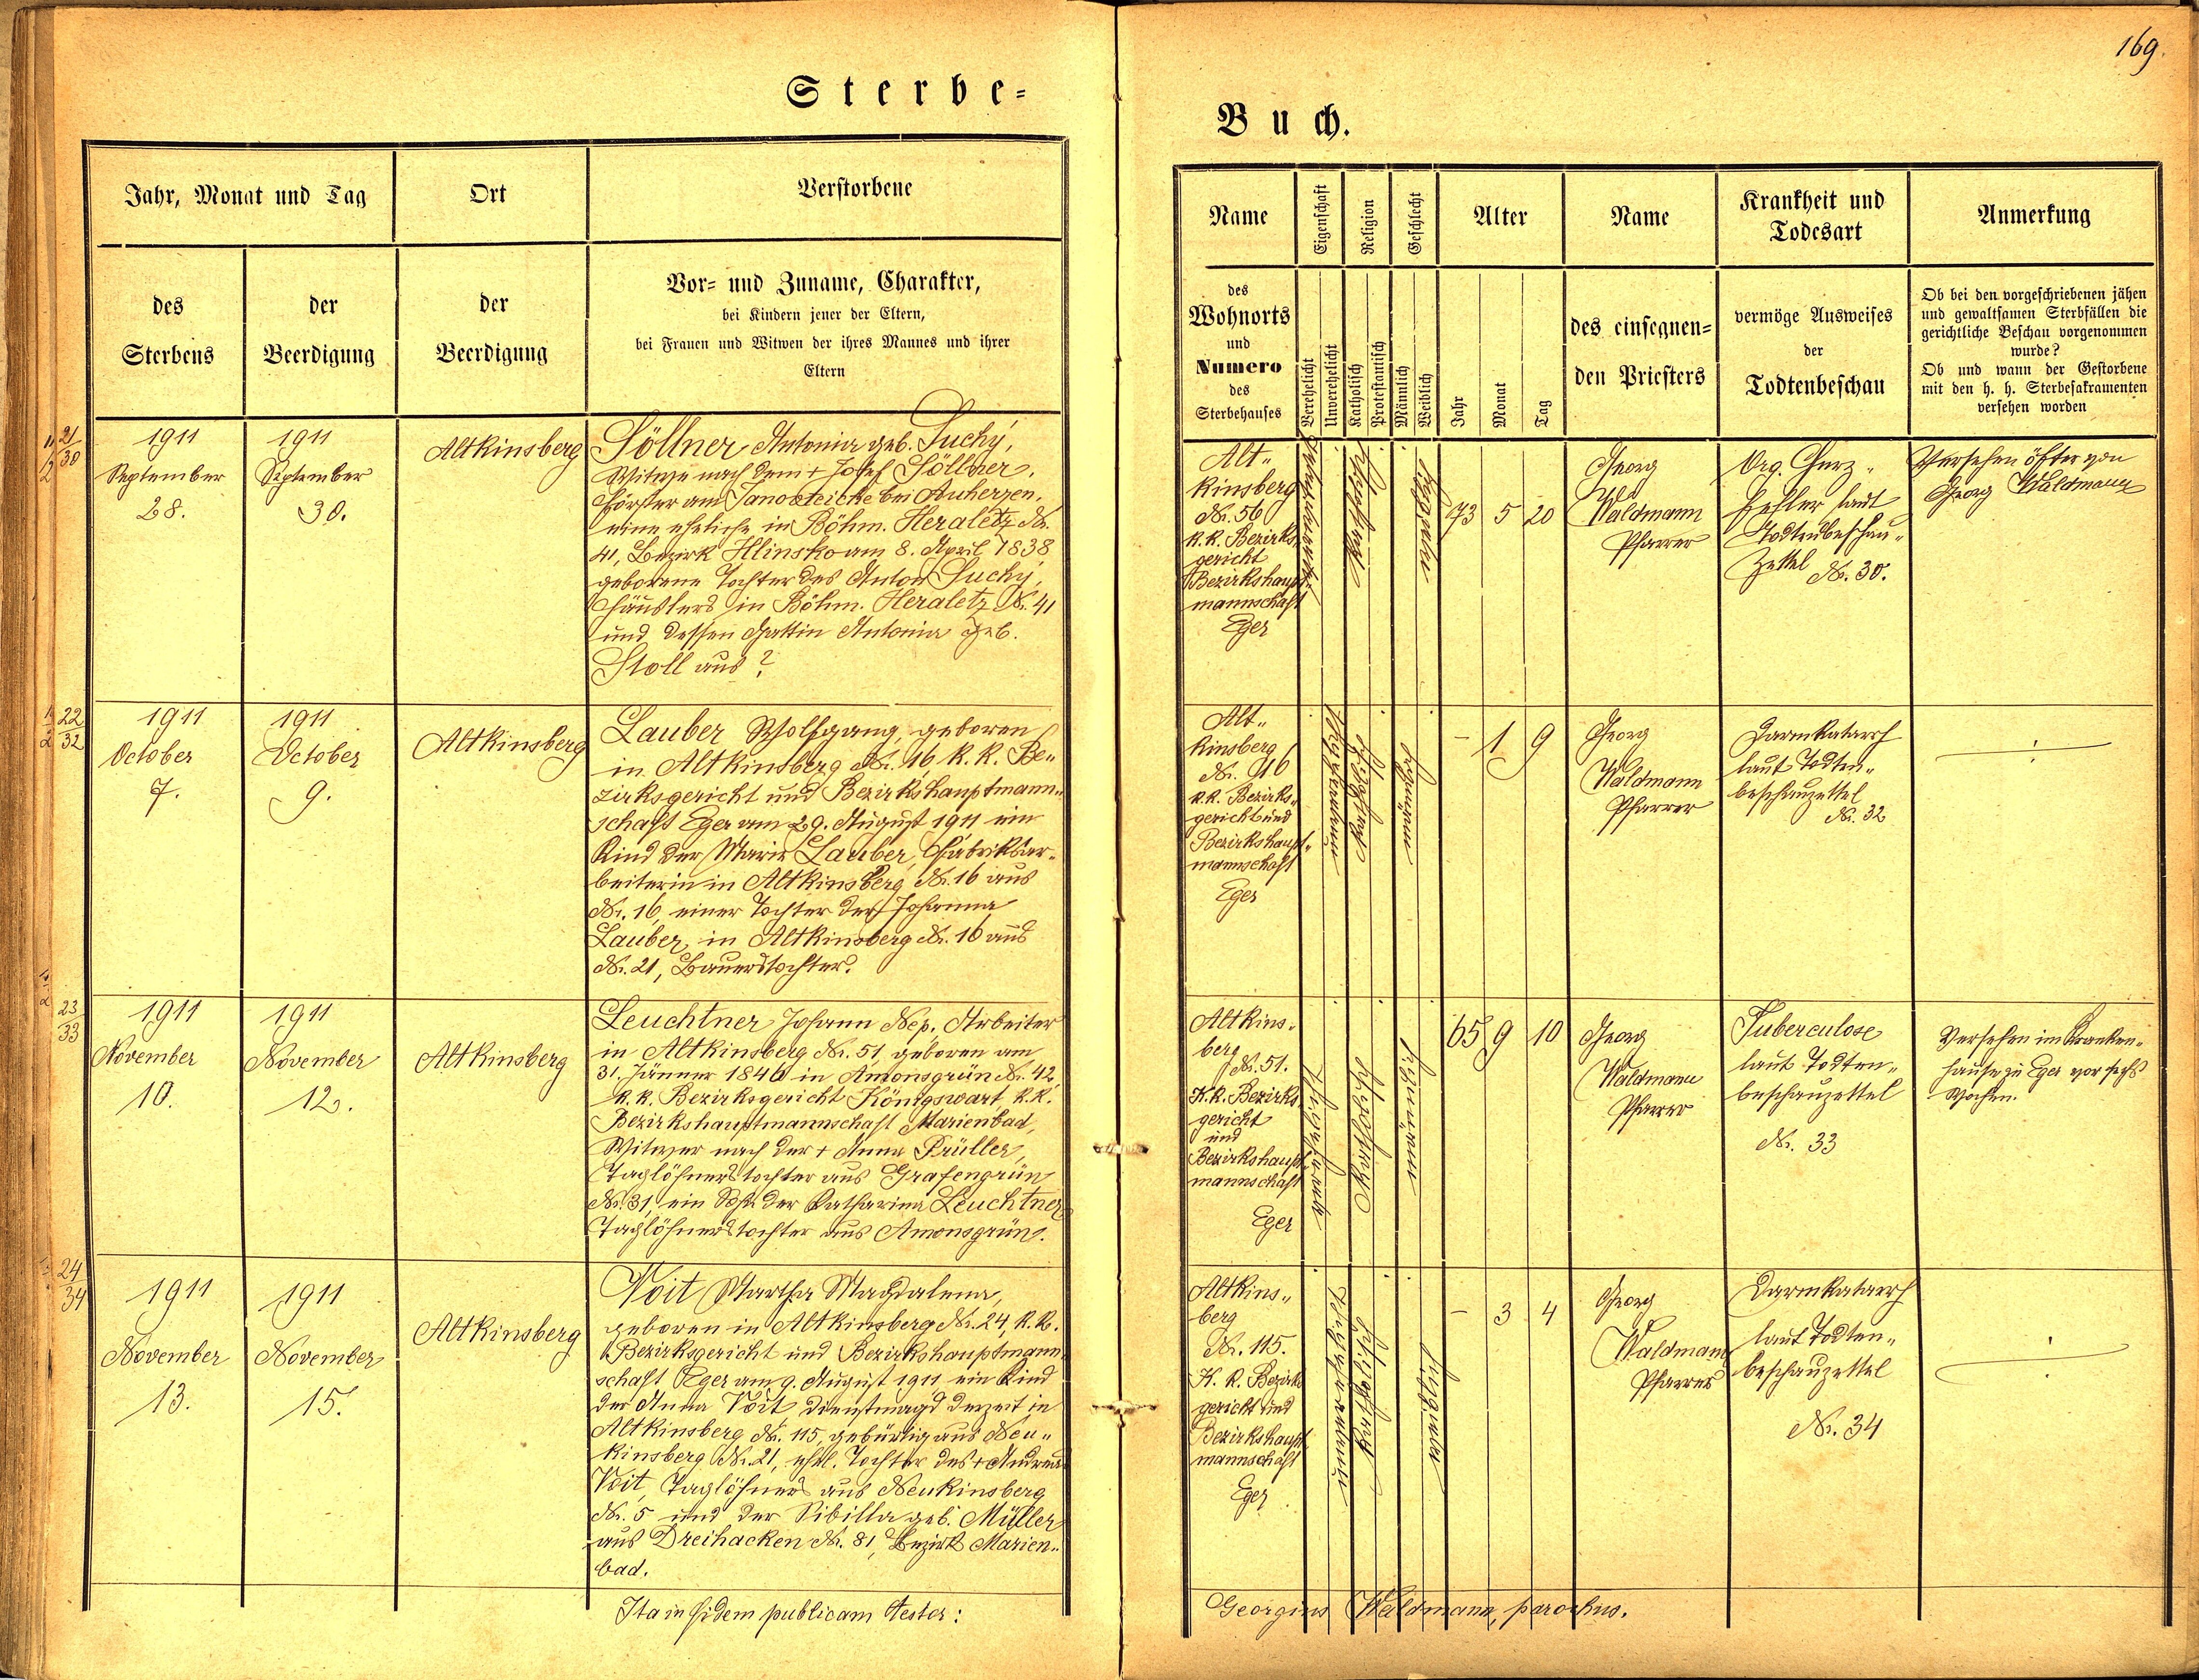 169.
Sterbe=
Buch.
Jahr, Monat und Tag
Ort
Verstorbene
des
Sterbens
der
Beerdigung
der
Beerdigung
Vor= und Zuname, Charakter,
bei Kindern jener der Eltern,
bei Frauen und Witwen der ihres Mannes und ihrer
Eltern
Name
Eigenschaft
Religion
Geschlecht
Alter
Name
Krankheit und
Todesart
Anmerkung
des
Wohnorts
und
Numero
des
Sterbehauses
Verehelicht
Unverehelicht
Katholisch
Protestantisch
Männlich
Weiblich
Jahr
Monat
Tag
des einsegnen=
den Priesters
vermöge Ausweises
der
Todtenbeschau
Ob bei den vorgeschriebenen jähen
und gewaltsamen Sterbfällen die
gerichtliche Beschau vorgenommen
wurde?
Ob und wann der Gestorbene
mit den h. h. Sterbesakramenten
versehen worden
21
30
1911
September
28.
1911
September
30.
Altkinsberg
Söllner Antonia geb. Suchý,
Witwe nach dem + Josef Söllner,
Förster am beim Auherzen,
eine eheliche in Böhm. Heraletz Nr.
41, Bezirk Hlinsko am 8. April 1838
geborene Tochter des Anton Suchý,
Häuslers in Böhm. Heraletz Nr. 41
und dessen Gattin Antonia geb.
Stoll aus ?
Alt„
kinsberg
Nr. 56
k.k. Bezirks„
gericht
Bezirkshaupt
mannschaft
Eger
73 5 20
Georg
Waldmann
Pfarrer
Org. Herz„
fehler laut
Todtenbeschau„
zettel Nr. 30.
Versehen öfter von
Georg Waldmann
22
32
1911
October
7.
1911
October
9.
Altkinsberg
Lauber Wolfgang, geboren
in Altkinsberg Nr. 16 k.k. Be„
zirksgericht und Bezirkshauptmann„
schaft Eger am 29. August 1911 ein
Kind der Marie Lauber, Fabriksar„
beiterin in Altkinsberg Nr. 16 aus
Nr. 16, einer Tochter der Johanna
Lauber, in Altkinsberg Nr. 16 aus
Nr. 21, Bauerstochter.
Alt„
kinsberg
Nr. 16
k.k. Bezirks„
gericht und
Bezirkshaupt„
mannschaft
Eger
– 1 9
Georg
Waldmann
Pfarrer
Darmkatarrh
laut Todten„
beschauzettel
Nr. 32
23
33
1911
November
10.
1911
November
12.
Altkinsberg
Leuchtner Johann Nep. Arbeiter
in Altkinsberg Nr. 51, geboren am
31. Jänner 1846 in Amonsgrün Nr. 42,
k.k. Bezirksgericht Königswart k.k.
Bezirkshauptmannschaft Marienbad,
Witwer nach der + Anna Prüller,
Taglöhnerstochter aus Grafengrün
Nr. 31, ein Sohn der Katharina Leuchtner
Taglöhnerstochter aus Amonsgrün.
Altkins„
berg
Nr. 51.
K.k. Bezirks
gericht
und
Bezirkshaupt
mannschaft
Eger
65 9 10
Georg
Waldmann
Pfarrer
Tuberculose
laut Todten„
beschauzettel
Nr. 33
Versehen im Kranken„
hause zu Eger vor sechs
Wochen.
24
34
1911
November
13.
1911
November
15.
Altkinsberg
Voit Martha Magdalena,
geboren in Altkinsberg Nr. 24, k.k.
Bezirksgericht und Bezirkshauptmann„
schaft Eger am 9. August 1911 ein Kind
der Anna Voit Dienstmagd derzeit in
Altkinsberg Nr. 115, gebürtig aus Neu„
kinsberg Nr. 21, ehel. Tochter des + Andreas
Voit, Taglöhners aus Neukinsberg
Nr. 5 und der Sibilla geb. Müller
aus Dreihacken Nr. 81, Bezirk Marien„
bad.
Altkins„
berg
Nr. 115.
K. k. Bezirks
gericht und
Bezirkshaupt
mannschaft
Eger
– 3 4
Georg
Waldmann
Pfarrer
Darmkatarrh
laut Todten„
beschauzettel
Nr. 34
Ita in fidem publicam testor:
Georgius Waldmann, parochus.